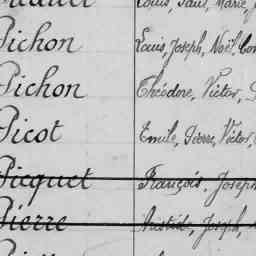 Louis, Paul, Marie,
Pichon Louis, Joseph, Noël,
Pichon Théodore, Victor,
Picot Emile, Pierre, Victor,
Picquet François, Joseph
Pierre Aristide, Joseph,